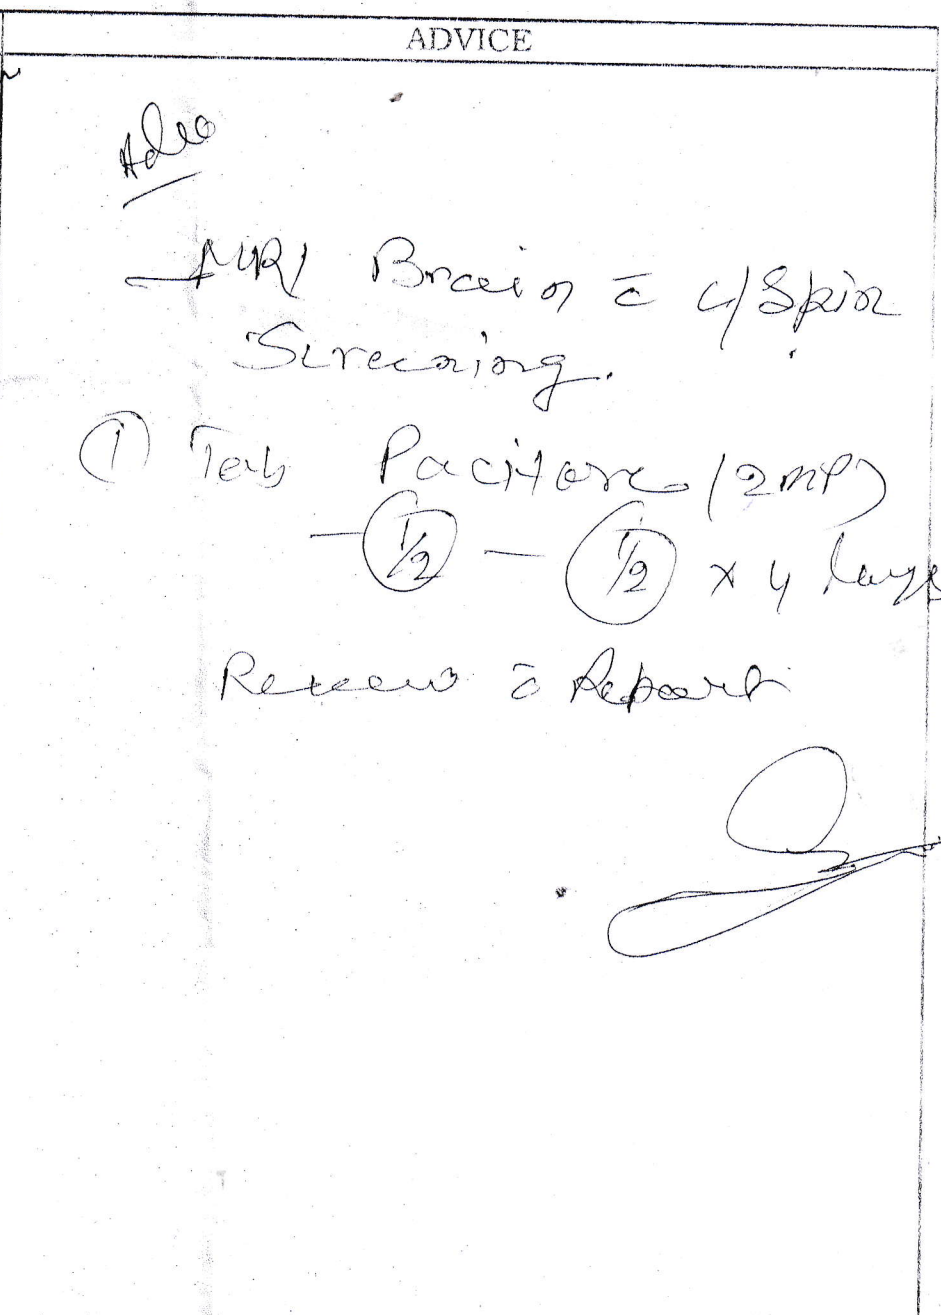 ADVICE
Adv
MRI Brain c̄ c/Spin
Screening.
① Tab Pacitane (2mg)
— ½ — ½ x 4 days
Review c̄ Report